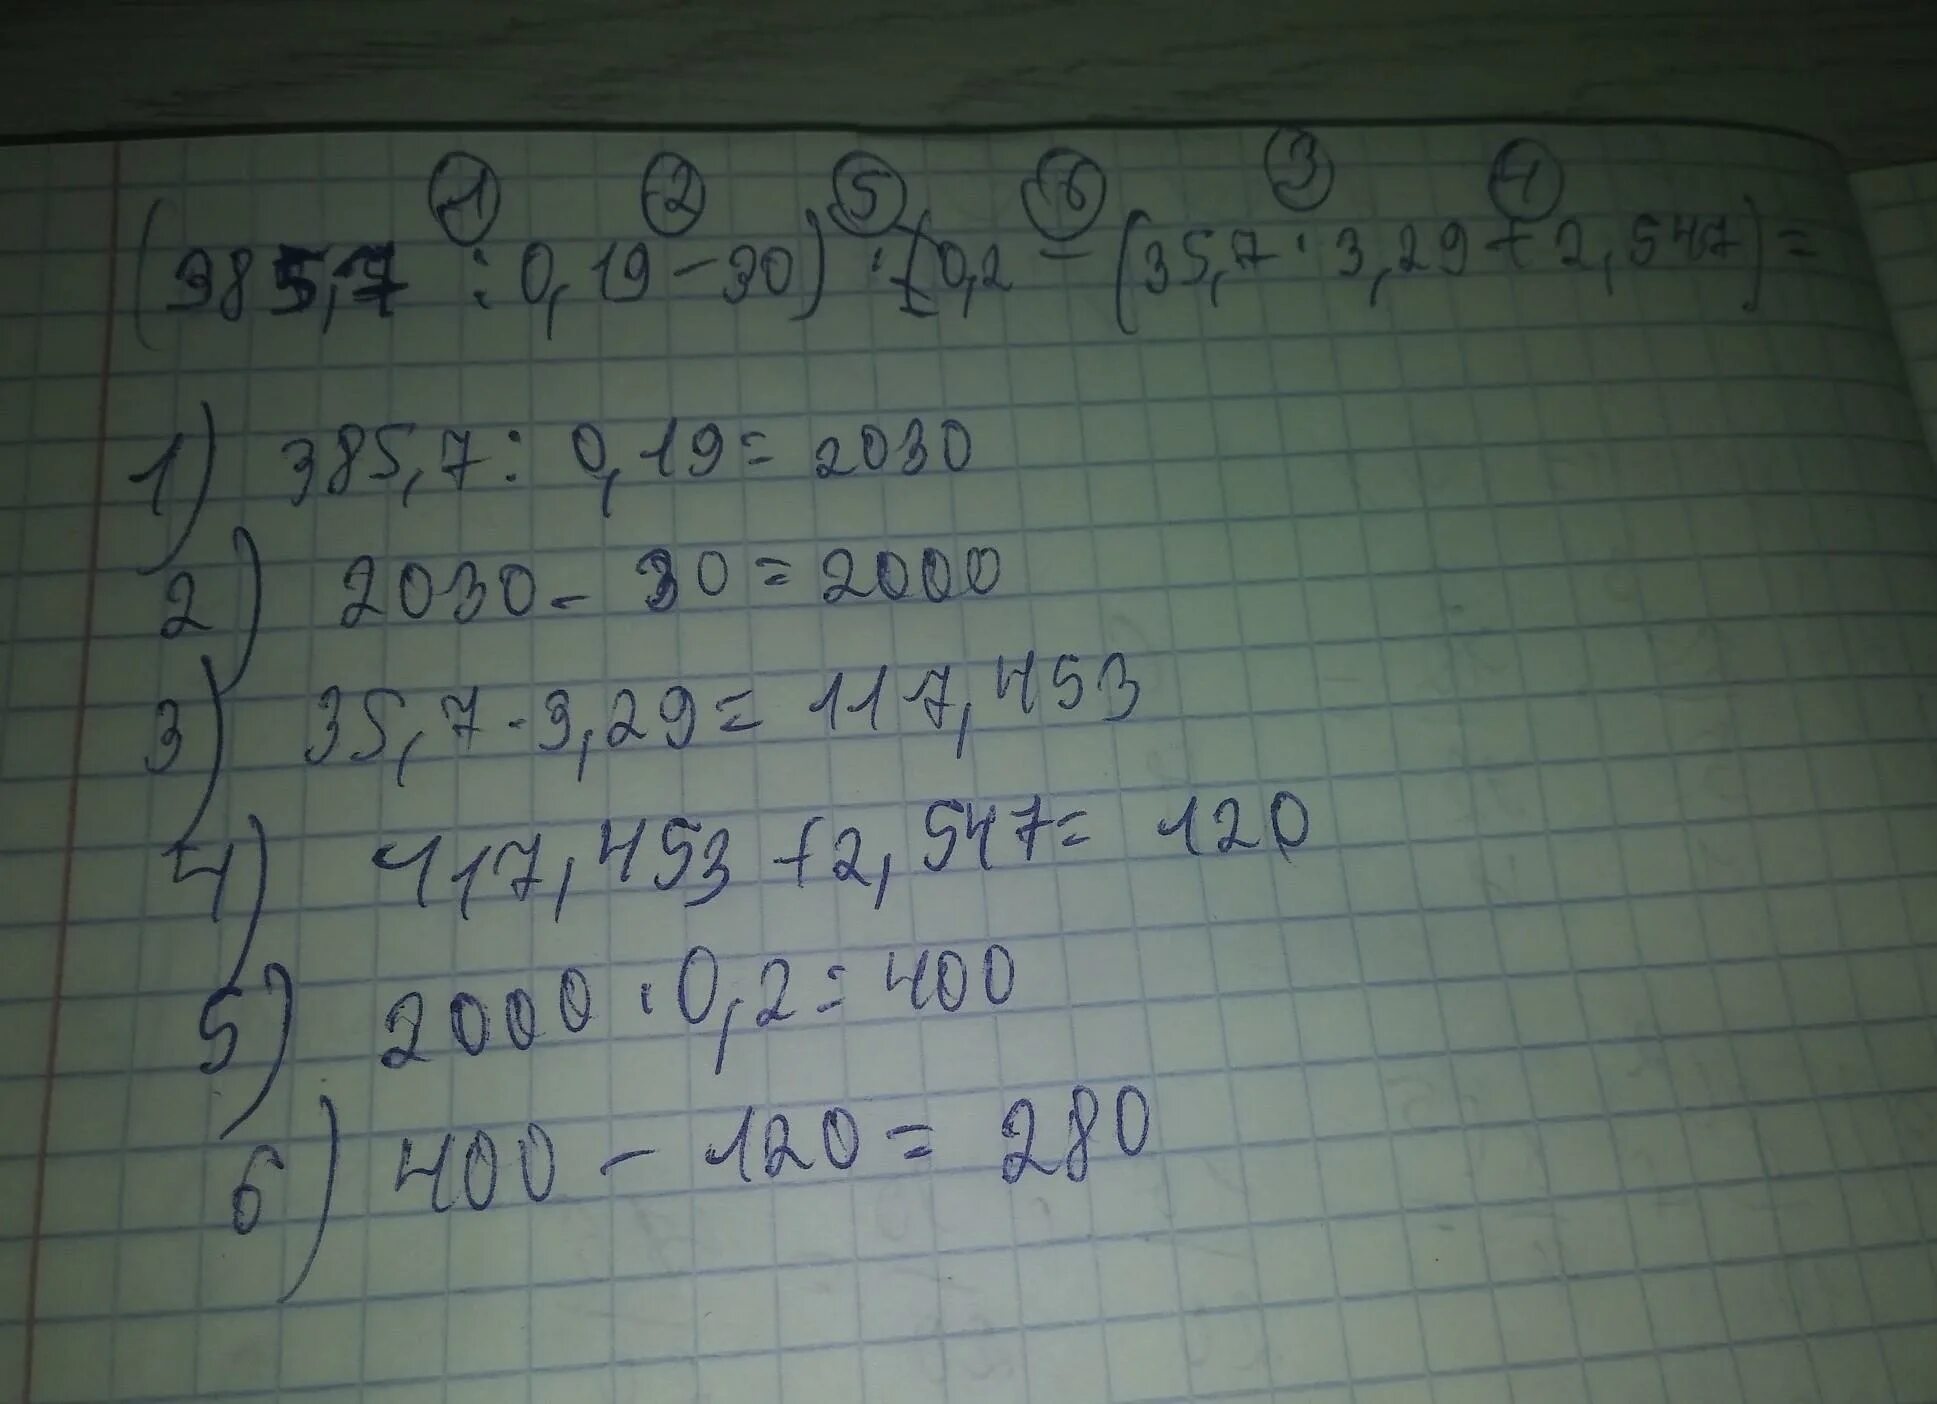 1 2 5 6 3 4
(385,7 : 0,19 - 30) · 0,2 - (35,7 · 3,29 + 2,547) =
1) 385,7 : 0,19 = 2030
2) 2030 - 30 = 2000
3) 35,7 · 3,29 = 117,453
4) 117,453 + 2,547 = 120
5) 2000 · 0,2 = 400
6) 400 - 120 = 280